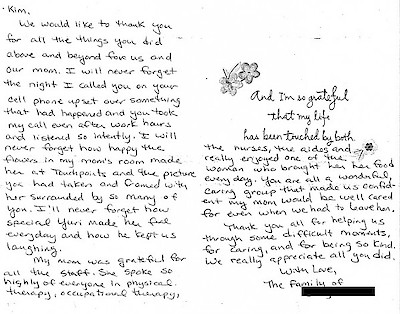 Kim,
We would like to thank you
for all the things you did
above and beyond for us and
our mom. I will never forget
the night I called you on your
cell phone upset over something
that had happened and you took
my call even after work hours
and listened so intently. I will
never forget how happy the
flowers in my mom's room made
her at Touchpoints and the picture
you had taken and framed with
her surrounded by so many of
you. I'll never forget how
special Yuri made her feel
everyday and how he kept us
laughing.
My mom was grateful for
all the staff. She spoke so
highly of everyone in physical
therapy, occupational therapy,
And I'm so grateful
that my life
has been touched by both
the nurses, the aides and
really enjoyed one of the
woman who brought her her food
every day. You are all a wonderful,
caring group that made us confid-
ent my mom would be well cared
for even when we had to leave her.
Thank you all for helping us
through some difficult moments,
for caring, and for being so kind.
We really appreciate all you did.
With Love,
The Family of